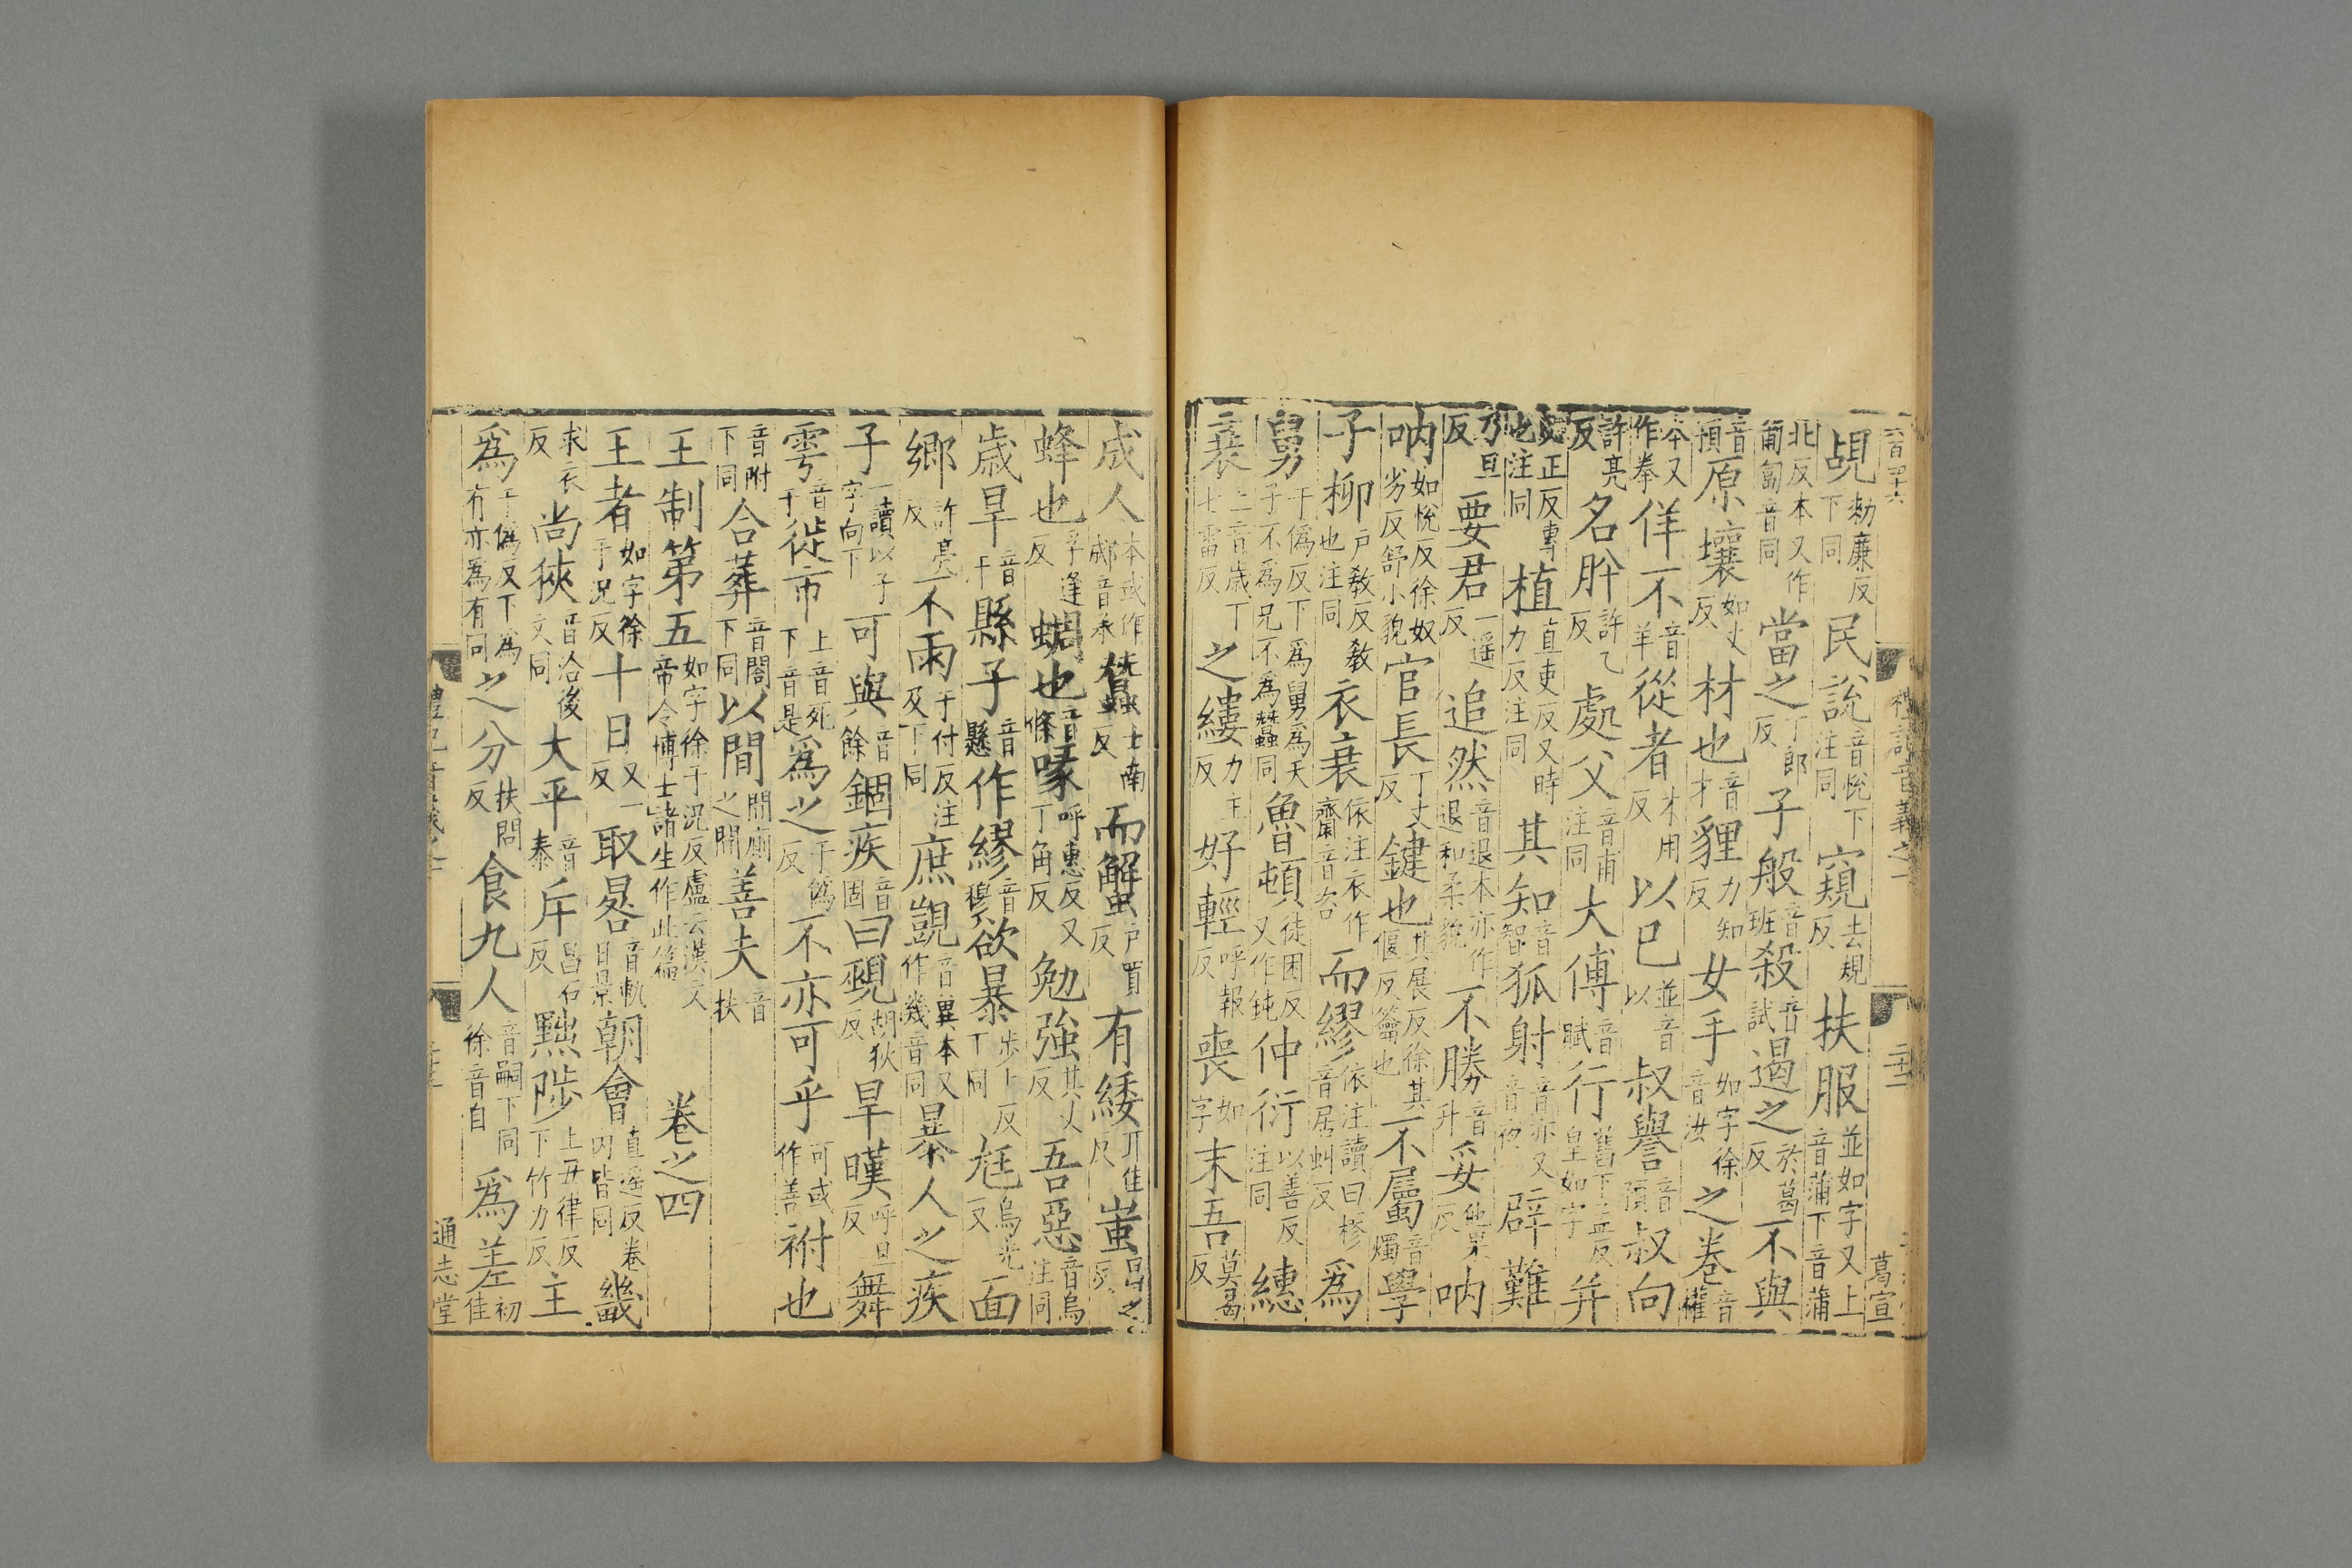 六百四十六 禮記音義之一 二十二 葛宣
覘勑廉反下同民說音悅下注同窺去規反扶服並如字又上音蒲下音蒲
北反本又作匍匐音同當之丁郎反子般音班殺音試遏之於葛反不與
音預原壤如丈反材也音才貍力知反女手如字徐音汝之卷音權
本又作拳佯不音羊從者才用反以巳並音以叔譽音預叔向
許亮反名肸許乙反處父音甫注同大傅音賦行舊下孟反皇如字并
必正反專也注同植直吏反又時力反注同其知音智狐射音亦又音夜辟難
乃旦反要君一遥反追然音退本亦作退和柔貌不勝音升妥他果反吶
如悅反徐奴劣反舒小貌官長丁丈反鍵也其展反徐其偃反籥也不屬音燭學
子柳戶敎反敎也注同衣衰依注衣作齋音咨而繆依注讀曰樛音居虯反爲
舅于僞反下爲舅爲天子不爲兄不爲蠶同魯頓徒困反又作鈍仲衍以善反注同繐
衰上音歲下七雷反之縷力主反好輕呼報反喪如字末吾莫曷反
成人本或作郕音承蠶士南反而蟹戶買反有緌耳佳反蚩昌之反
蜂也孚逢反蜩也音條喙呼惠反又丁角反勉強其丈反吾惡音烏注同
歳旱音干縣子音懸作繆音穆欲暴步卜反下同尪烏光反面
鄉許亮反不雨于付反注及下同庶覬音冀本又作幾音同暴人之疾
子一讀以子字向下可與音餘錮疾音固曰覡胡狄反旱暵呼旦反舞
雩音于徙市上音死下音是爲之于僞反不亦可乎可或作善祔也
音附下同合葬音閤下同以間間廁之間善夫音扶
王制第五如字徐于況反盧云漢文帝令博士諸生作此篇 卷之四
王者如字徐于況反十日又一反取晷音軌日景朝會直遥反卷内皆同畿
求衣反尚狹音洽後文同大平音泰斥昌石反黜陟上丑律反下竹力反主
爲于僞反下爲有亦爲有同之分扶問反食九人音嗣下同徐音自爲差初佳
通志堂